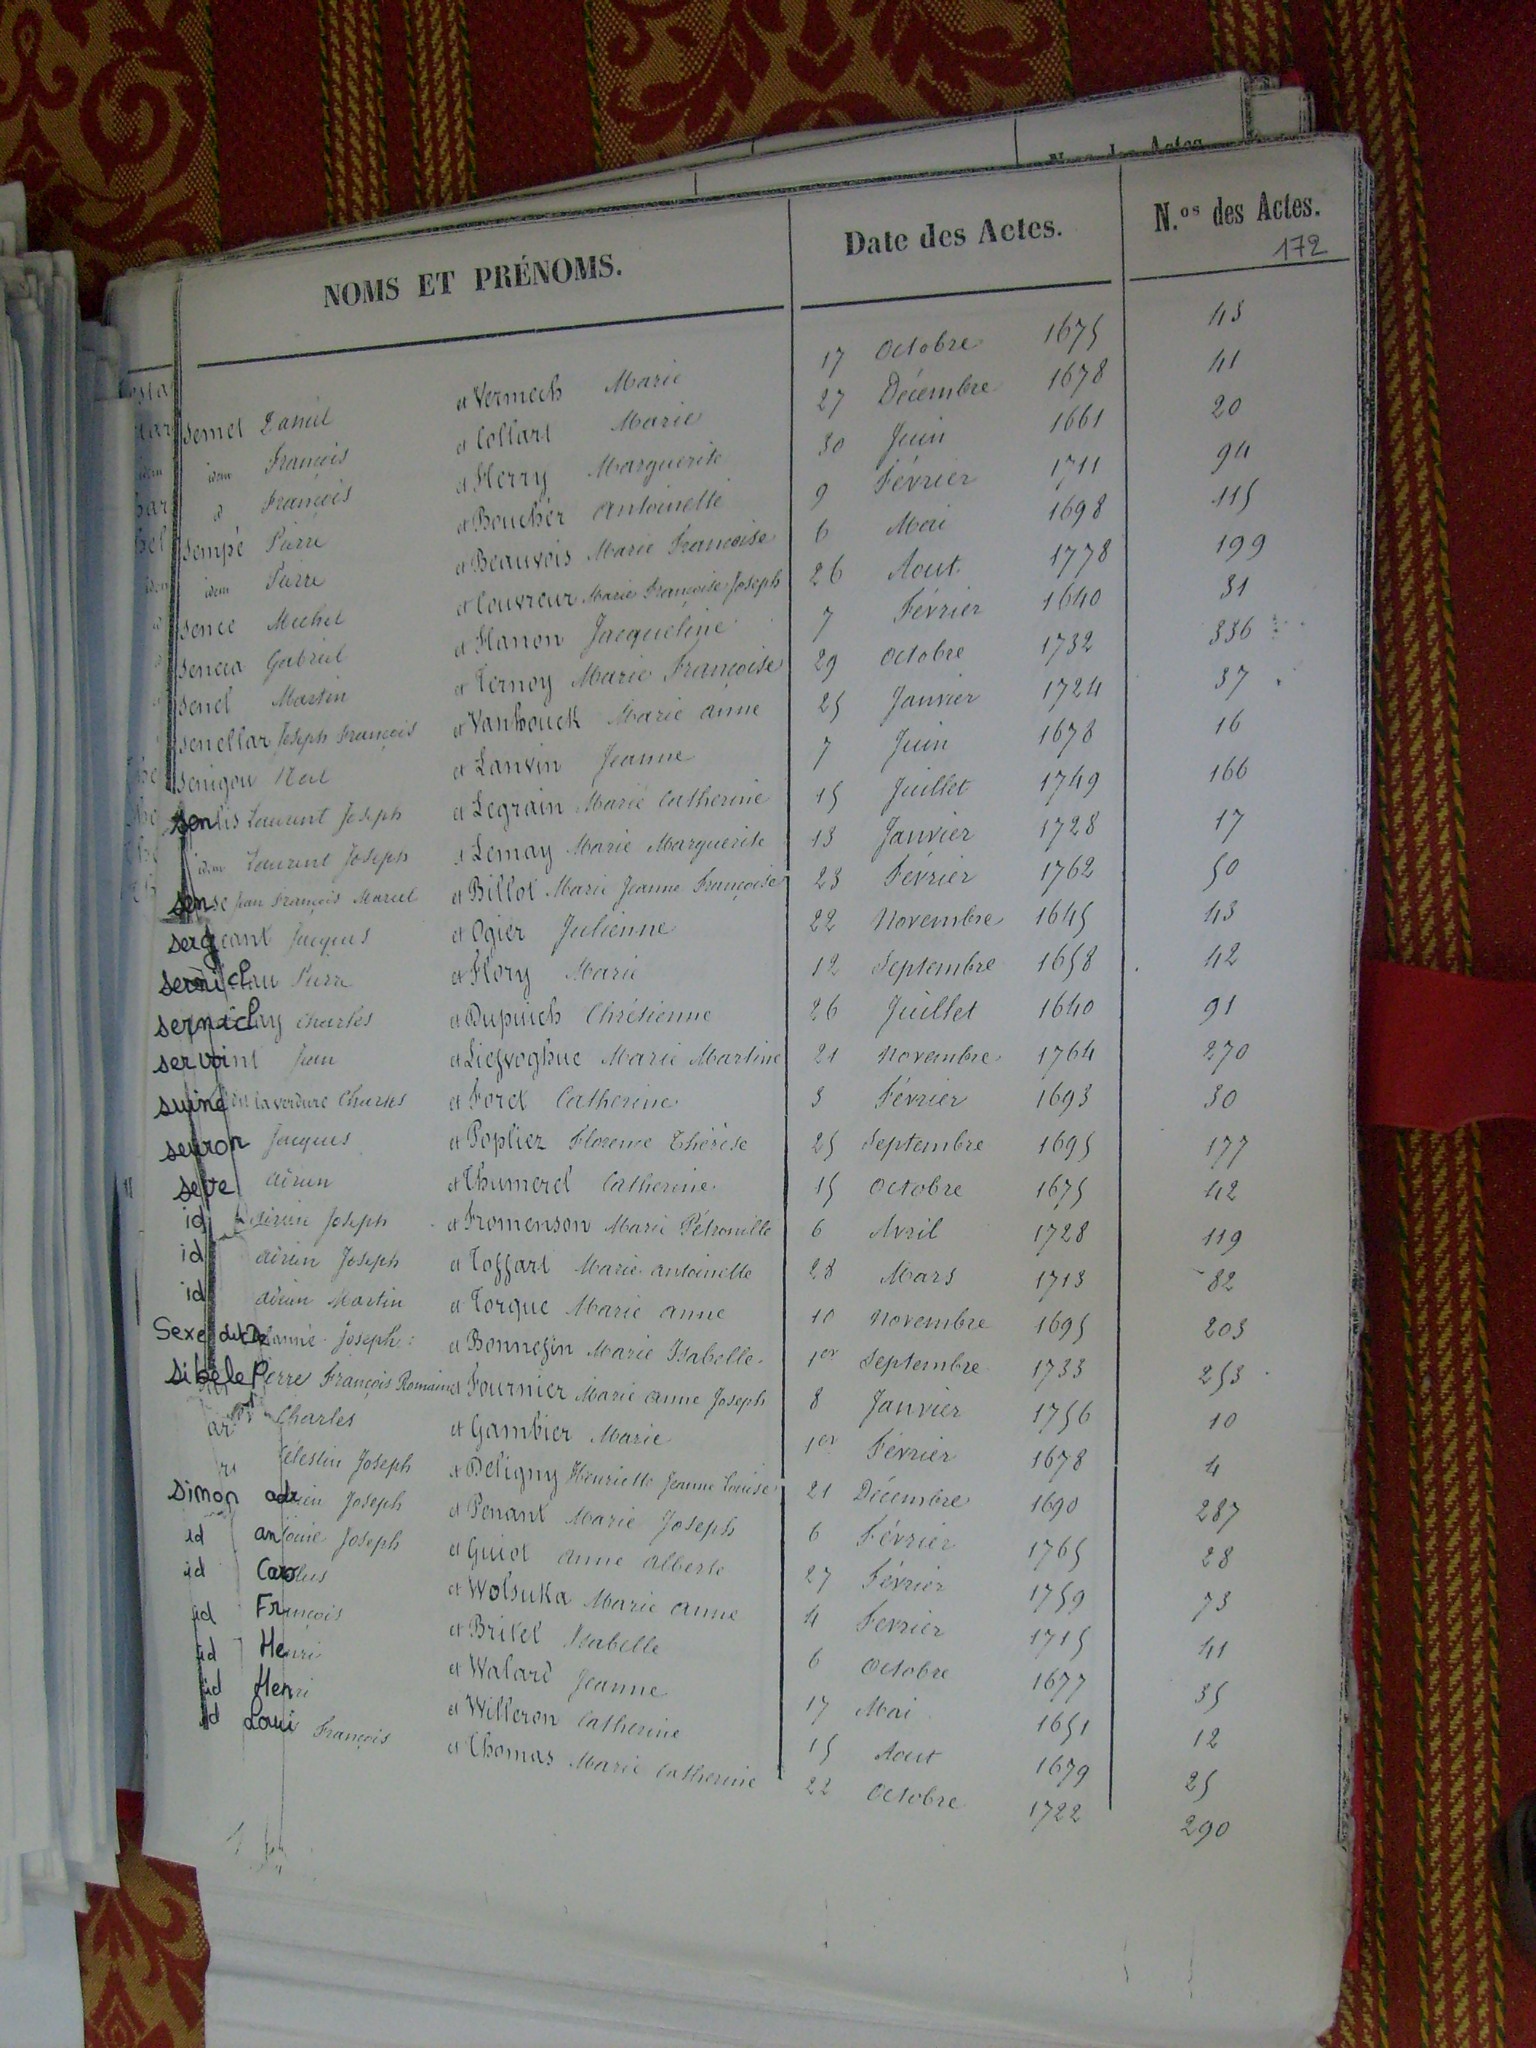 NOMS ET PRÉNOMS. Date des Actes. N.os des Actes.
172
semet Daniel et Vermech Marie 17 Octobre 1675 43
idem François et Collart Marie 27 Décembre 1678 41
d François et Flerry Marguerite 30 Juin 1661 20
sempé Pierre et Boucher antoinette 9 Février 1711 94
idem Pierre et Beauvois Marie Françoise 6 Mai 1698 115
sence Michel et Couvreur Marie Françoise Joseph 26 Aout 1778 199
sencia Gabriel et Hanon Jacqueline 7 Février 1640 31
senel Martin et Ternoy Marie Françoise 29 octobre 1732 336
senellar Joseph François et Vanhouck Marie anne 25 Janvier 1724 37
senigou Noel et Lanvin Jeanne 7 Juin 1678 16
senlis Laurent Joseph et Legrain Marie Catherine 15 Juillet 1749 166
idem Laurent Joseph et Lemay Marie Marguerite 13 Janvier 1728 17
sense Jean François Marcel et Billot Marie Jeanne Françoise 23 Février 1762 50
sergeant Jacques et Ogier Julienne 22 Novembre 1645 43
serniclau Pierre et Flory Marie 12 Septembre 1658 42
serniclay Charles et Dupuich Chrétienne 26 Juillet 1640 91
servoint Jean et Liefvoghue Marie Martine 21 novembre 1764 270
suine dit la verdure Charles et Foret Catherine 3 Février 1693 30
seuron Jacques et Popliez Florence Thérèse 25 Septembre 1695 177
seve adrien et Thumerel Catherine 15 Octobre 1675 42
id adrien Joseph et Fromenson Marie Pétronille 6 Avril 1728 119
id adrien Joseph et Toffart Marie antoinette 28 Mars 1713 82
id adrien Martin et Torque Marie anne 10 Novembre 1695 203
Sexe dit De lanné Joseph et Bonnefin Marie Isabelle 1er Septembre 1733 253
sibele Pierre François Romain et Fournier Marie anne Joseph 8 Janvier 1756 10
Charles et Gambier Marie 1er Février 1678 4
Célestin Joseph et Deligny Henriette Jeanne Louise 21 Décembre 1690 287
simon adrien Joseph et Penant Marie Joseph 6 Février 1765 28
id antoine Joseph et Guiot anne alberte 27 Février 1759 73
id Carolus et Wolsuka Marie anne 4 Fevrier 1715 41
id François et Britel Isabelle 6 Octobre 1677 35
id Henri et Walard Jeanne 17 Mai 1651 12
id Henri et Willeron Catherine 15 Aout 1679 25
id Loui François et Thomas Marie Catherine 22 Octobre 1722 290